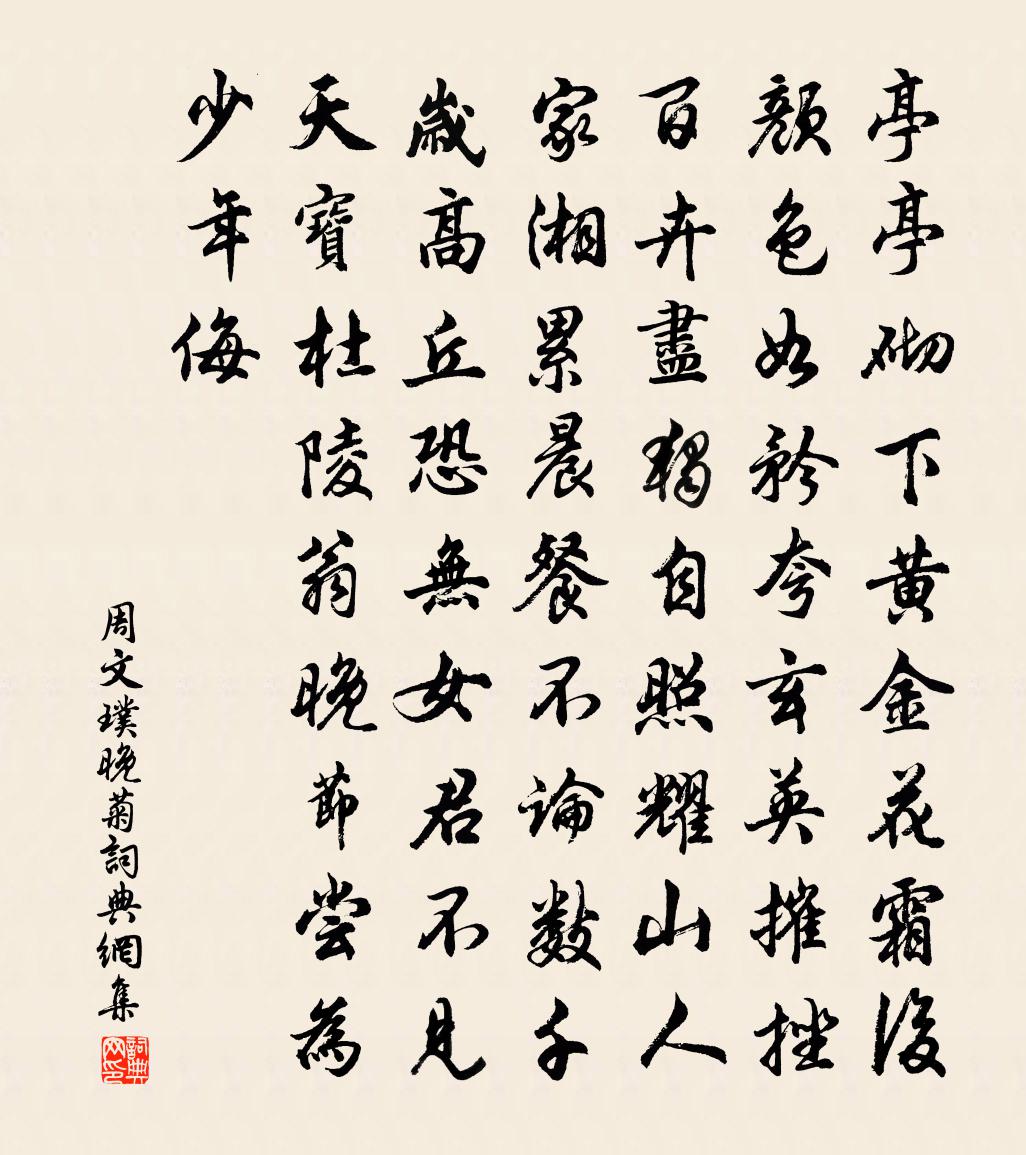 亭亭砌下黄金花霜後
顏色如矜夸玄英摧挫
百卉盡獨自照耀山人
家湘累晨餐不論數千
歲高丘恐無女君不見
天寶杜陵翁晚節嘗為
少年侮
周文璞晚菊詞典網集
詞典网印